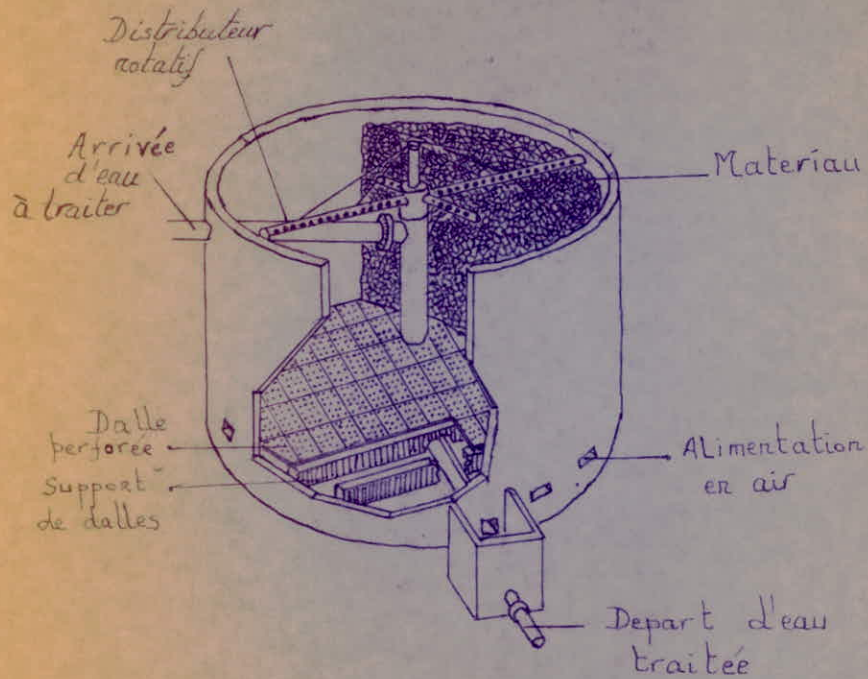 Distributeur
rotatif
Arrivée
d'eau
à traiter
Materiau
Dalle
perforée
Support
de dalles
ALimentation
en air
Depart d'eau
traitée